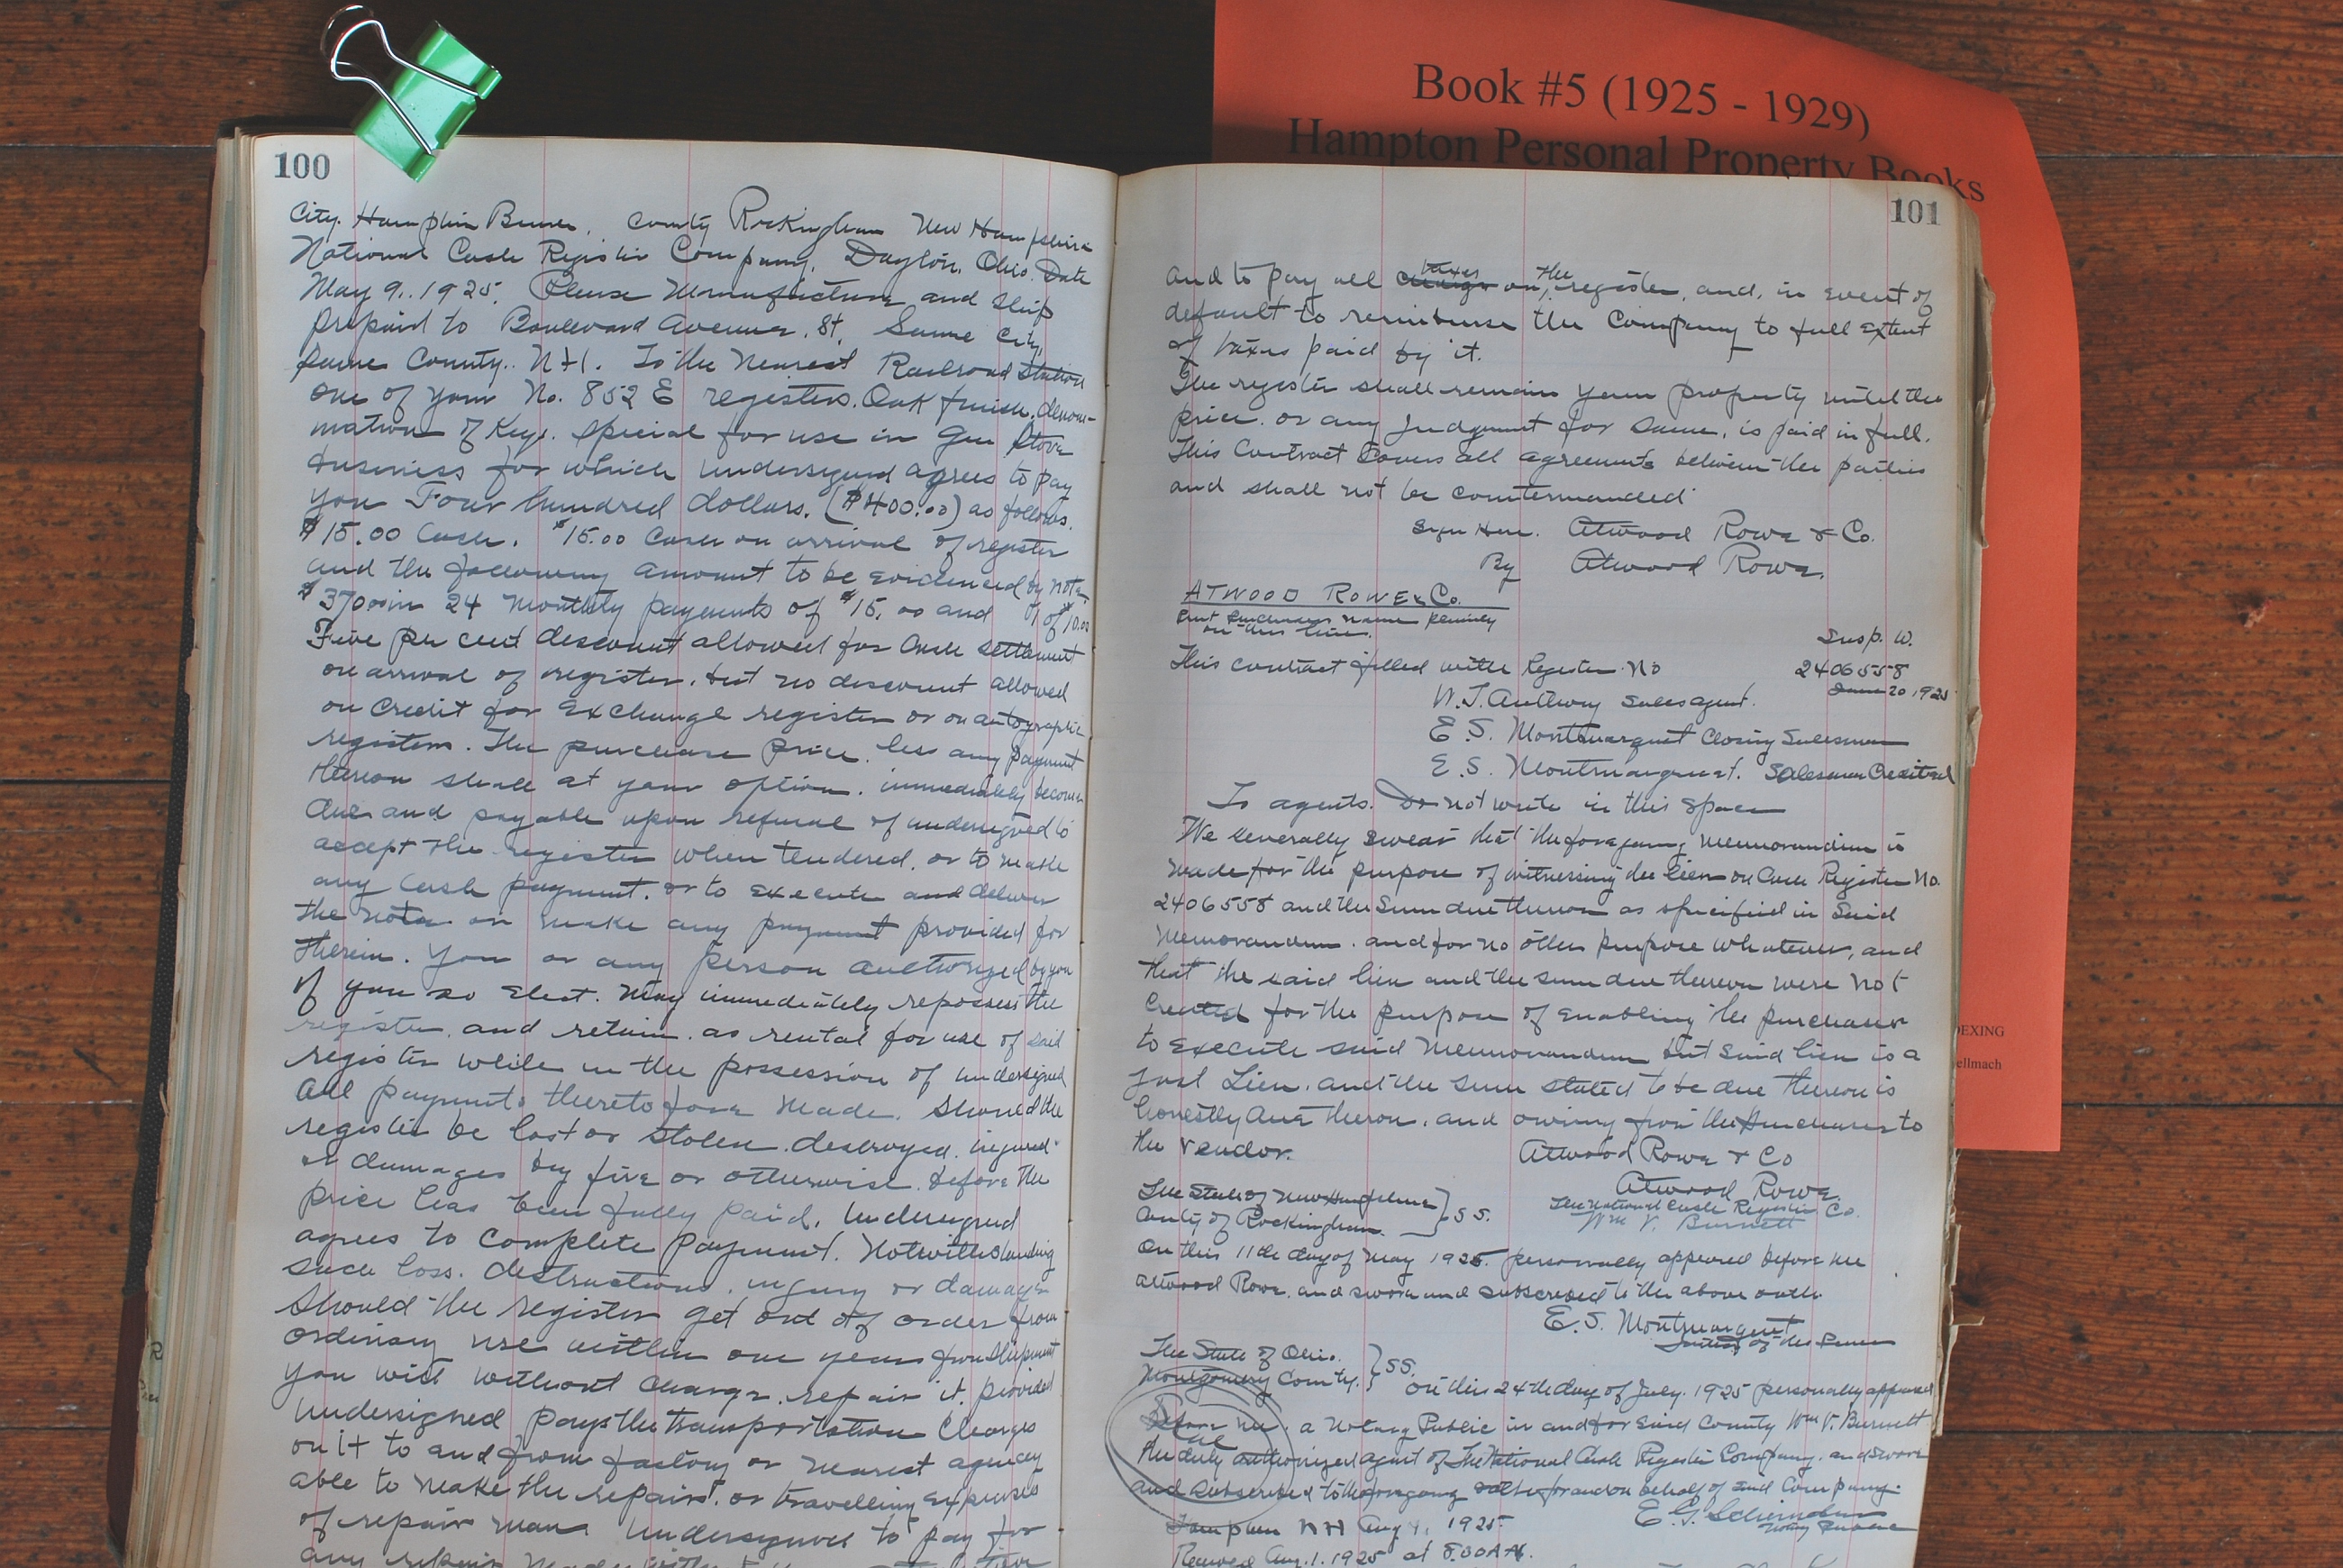 Book #5 (1925 - 1929)
Hampton Personal Property Books
100
City. Hampton Beach, County Rockingham New Hampshire
National Cash Register Company, Dayton, Ohio. Date
May 9, 1925. Please Manufacture and ship
prepaid to Boulevard Avenue. St. Same City,
same County. N.H. To the Nearest Railroad Station
one of your No. 852 E registers. Oak finish. denom-
ination of Keys. Special for use in Gen Store
business for which undersigned agrees to pay
you Four hundred dollars. ($400.00) as follows.
$15.00 Cash. $15.00 Cash on arrival of register
and the following amount to be evidenced by note
$370.00 in 24 Monthly payments of $15.00 and 1 of $10.00
Five per cent discount allowed for Cash settlement
on arrival of register. but no discount allowed
on Credit for Exchange register or on autographic
registers. The purchase price less any payment
thereon shall at your option. immediately become
due and payable upon refusal of undersigned to
accept the register when tendered. or to make
any Cash payment. or to execute and deliver
the note or make any payment provided for
therein. You or any person authorized by you
if you so elect. May immediately repossess the
register. and retain. as rental for use of said
register while in the possession of undersigned
all payments theretofore made. Should the
register be lost or stolen. destroyed. injured
or damages by fire or otherwise. before the
price has been fully paid, undersigned
agrees to complete payment. Notwithstanding
such loss. destruction. injury or damage
Should the register get out of order from
ordinary use within one year from shipment
you will without charge. repair it. provided
undersigned pays the transportation charges
on it to and from factory or nearest agency
able to make the repairs. or travelling expenses
of repair man. Undersigned to pay for
any repairs made
101
and to pay all taxes on the register, and, in event of
default to reimburse the Company to full extent
of taxes paid by it.
The register shall remain your property until the
price. or any Judgment for same, is paid in full.
This Contract Covers all agreements between the parties
and shall not be countermanded
Sign Here. Atwood Rowe & Co.
By Atwood Rowe.
ATWOOD ROWE & Co.
Print Purchasers name plainly
on this line.
Insp. W.
This contract filled with Register No 2406558
June 20 1925
W. J. Anthony Sales agent.
E. S. Montmarquet Closing Salesman
E. S. Montmarquet. Salesman Credited
To agents. Do not write in this Space
We severally swear that the foregoing memorandum is
made for the purpose of witnessing the lien on Cash Register No.
2406558 and the Sum due thereon as specified in Said
Memorandum. and for no other purpose whatever, and
that the said lien and the sum due thereon were not
Created for the purpose of enabling the purchaser
to execute said Memorandum but said lien is a
just Lien. and the sum stated to be due thereon is
honestly due theron. and owing from the Purchaser to
the Vendor.
Atwood Rowe & Co
Atwood Rowe.
The National Cash Register Co.
Wm V. Burnett
The State of New Hampshire
County of Rockingham. } SS.
On this 11th day of May 1925. personally appeared before me
Atwood Rowe. and sworn and subscribed to the above oath
E. S. Montmarquet
Justice of the Peace
The State of Ohio.
Montgomery County. } SS.
On this 24th day of July. 1925 personally appeared
before me. a Notary Public in and for Said County Wm V. Burnett
the duly authorized agent of The National Cash Register Company. and sworn
and subscribed to the foregoing oath for and on behalf of said Company.
Seal
Notary Public
Hampton NH Aug 1. 1925
Received Aug. 1. 1925 at 8.30 A.M.
DEXING
ellmach